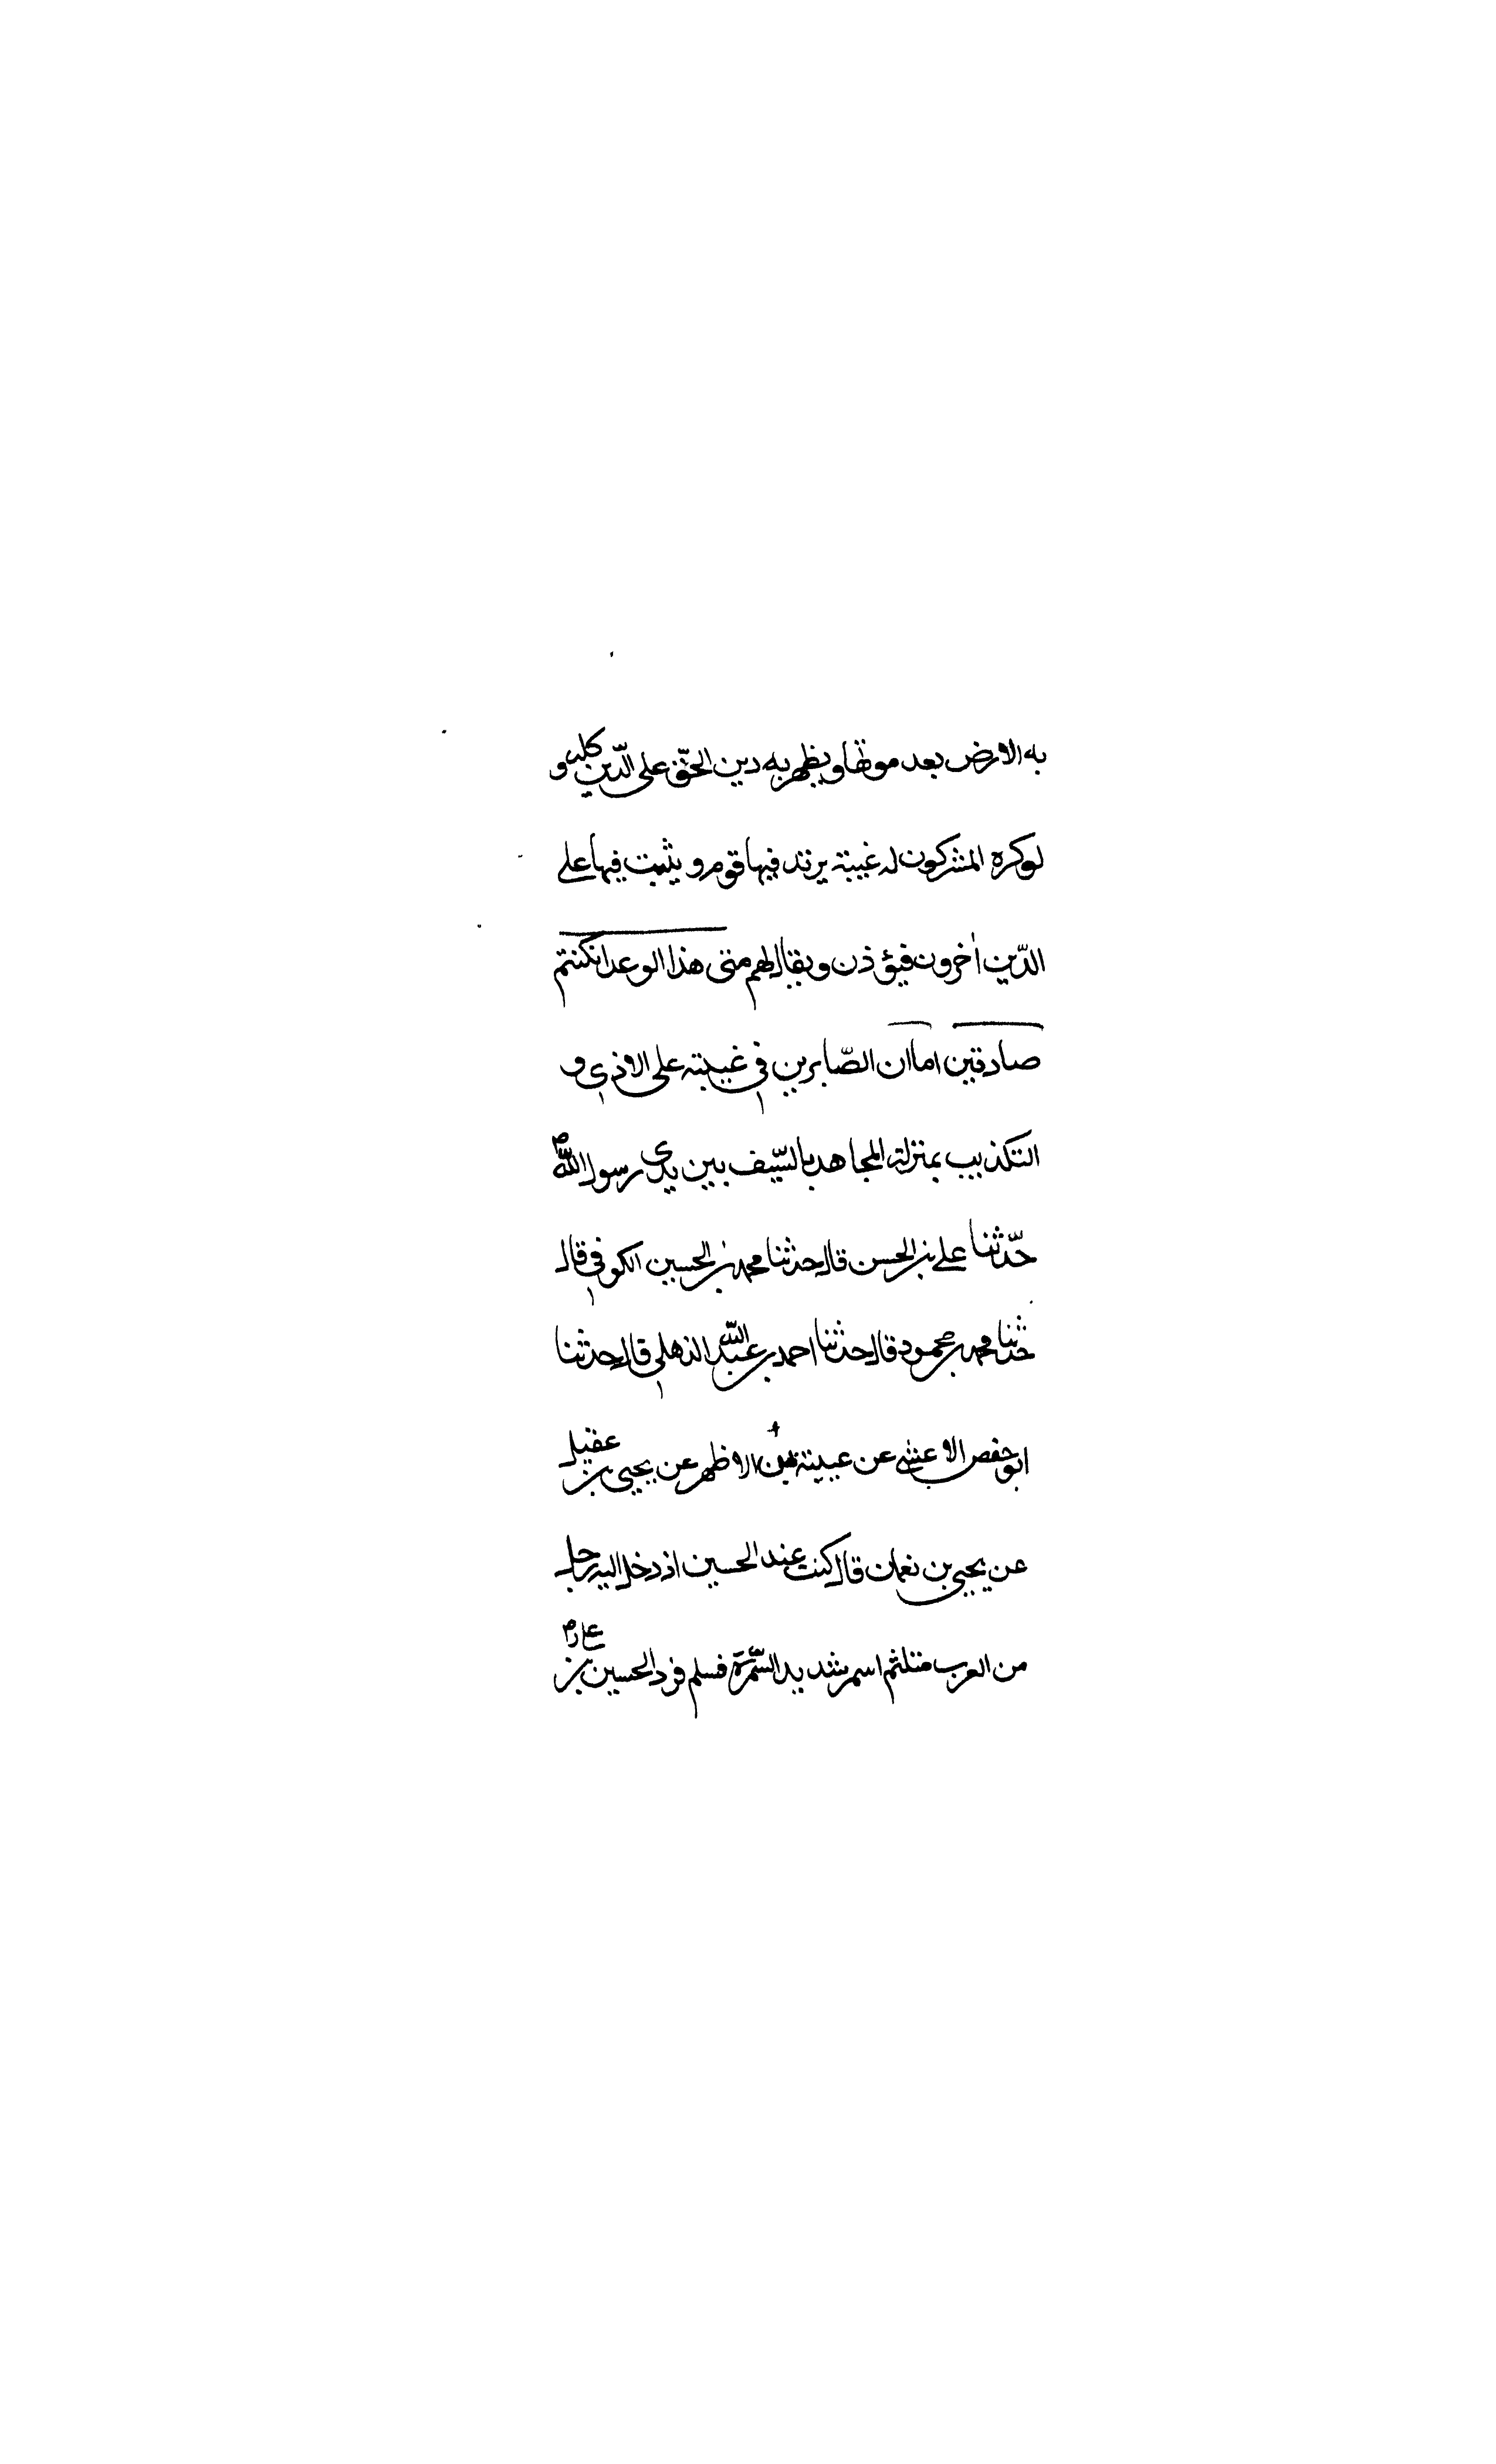 به الارض بعد موتها ويظهر به دين الحقّ على الدّين كله و
لوكره المشركون له غيبة يرتد فيها قوم و يثبت فيها على
الدّين اخرون فيؤذن ويقال لهم متى هذا الوعد انكنتم
صادقين اما ان الصّابرين في غيبته على الاذى و
التكذيب بمنزلة المجاهد بالسّيف بين يدى رسول اللّه ص
حدّثنا على بن الحسن قال حدثنا محمد بن الحسين الكوفي قال
حدثنا محمد بن محمود قال حدثنا احمد بن عبد اللّه الذهلي قال حدثنا
ابو حفص الاعشى عن عبينة بن الاظهر عن يحيى بن عقيل
عن يحيى بن نعمان قال كنت عند الحسين اذ دخل اليه رجل
من العرب متلثم اسمر شديد السّمرة فسلم فرد الحسين بن